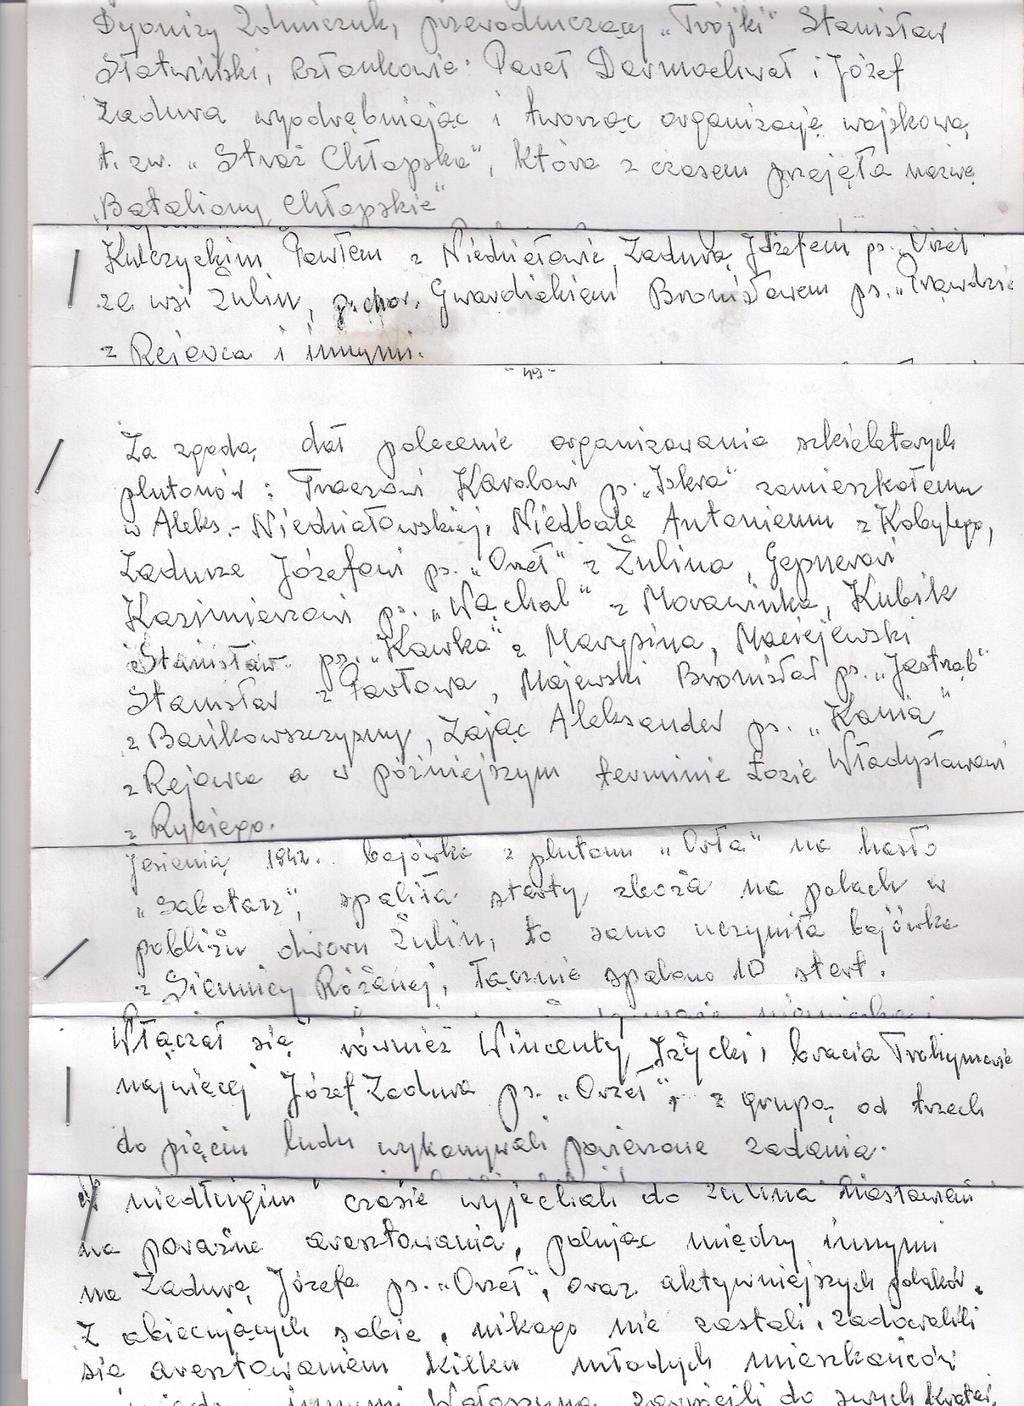 Dyonizy Żołnieczuk, przewodniczący „Trójki" Stanisław
Słotwiński, członkowie: Paweł Darmochwał i Józef
Zadura wyodrębniając i tworząc organizację wojskową
t. zw. „Straż Chłopska", która z czasem przejęła nazwę
„Bataliony Chłopskie"
Kulczyckim Pawłem z Niedziałowic, Zadurą Józefem ps. „Orzeł"
ze wsi Żulin, p.chor. Gwardiakiem Bronisławem ps. „Prawdzic
z Rejowca i innymi.
- 49 -
Za zgodą dał polecenie organizowania szkieletowych
plutonów: Traczowi Karolowi ps. „Iskra" zamieszkałemu
w Aleks.-Niedziałowskiej, Niedbale Antoniemu z Kobylego,
Zadurze Józefowi ps. „Orzeł" z Żulina, Gepnerowi
Kazimierzowi ps. „Wąchal" z Morawinka, Kubik
Stanisław ps. „Kawka" z Marysina, Maciejewski
Stanisław z Pawłowa, Majewski Bronisław ps. „Jastrząb"
z Bańkowszczyzny, Zając Aleksander ps. „Kania"
z Rejowca a w późniejszym terminie Łozie Władysławowi
z Rybiego.
Jesienią 1942. bojówka z plutonu „Orła" na hasło
„sabotarz", spaliła sterty zboża na polach w
pobliżu dworu Żulin, to samo uczyniła bojówka
z Siennicy Różanej, łącznie spalono 10 stert.
Włączał się również Wincenty Iżycki, bracia Trochymowie
najwięcej Józef Zadura ps. „Orzeł", z grupą od trzech
do pięciu ludzi wykonywali powierzone zadania.
W niedługim czasie wyjechali do Żulina nastawieni
na poważne aresztowania, polując między innymi
na Zadurę Józefa ps. „Orzeł", oraz aktywniejszych polaków.
Z obiecujących sobie, nikogo nie zastali, zadowolili
się aresztowaniem kilku młodych mieszkańców
innymi Wołoszyna zawrócili do swych kwater